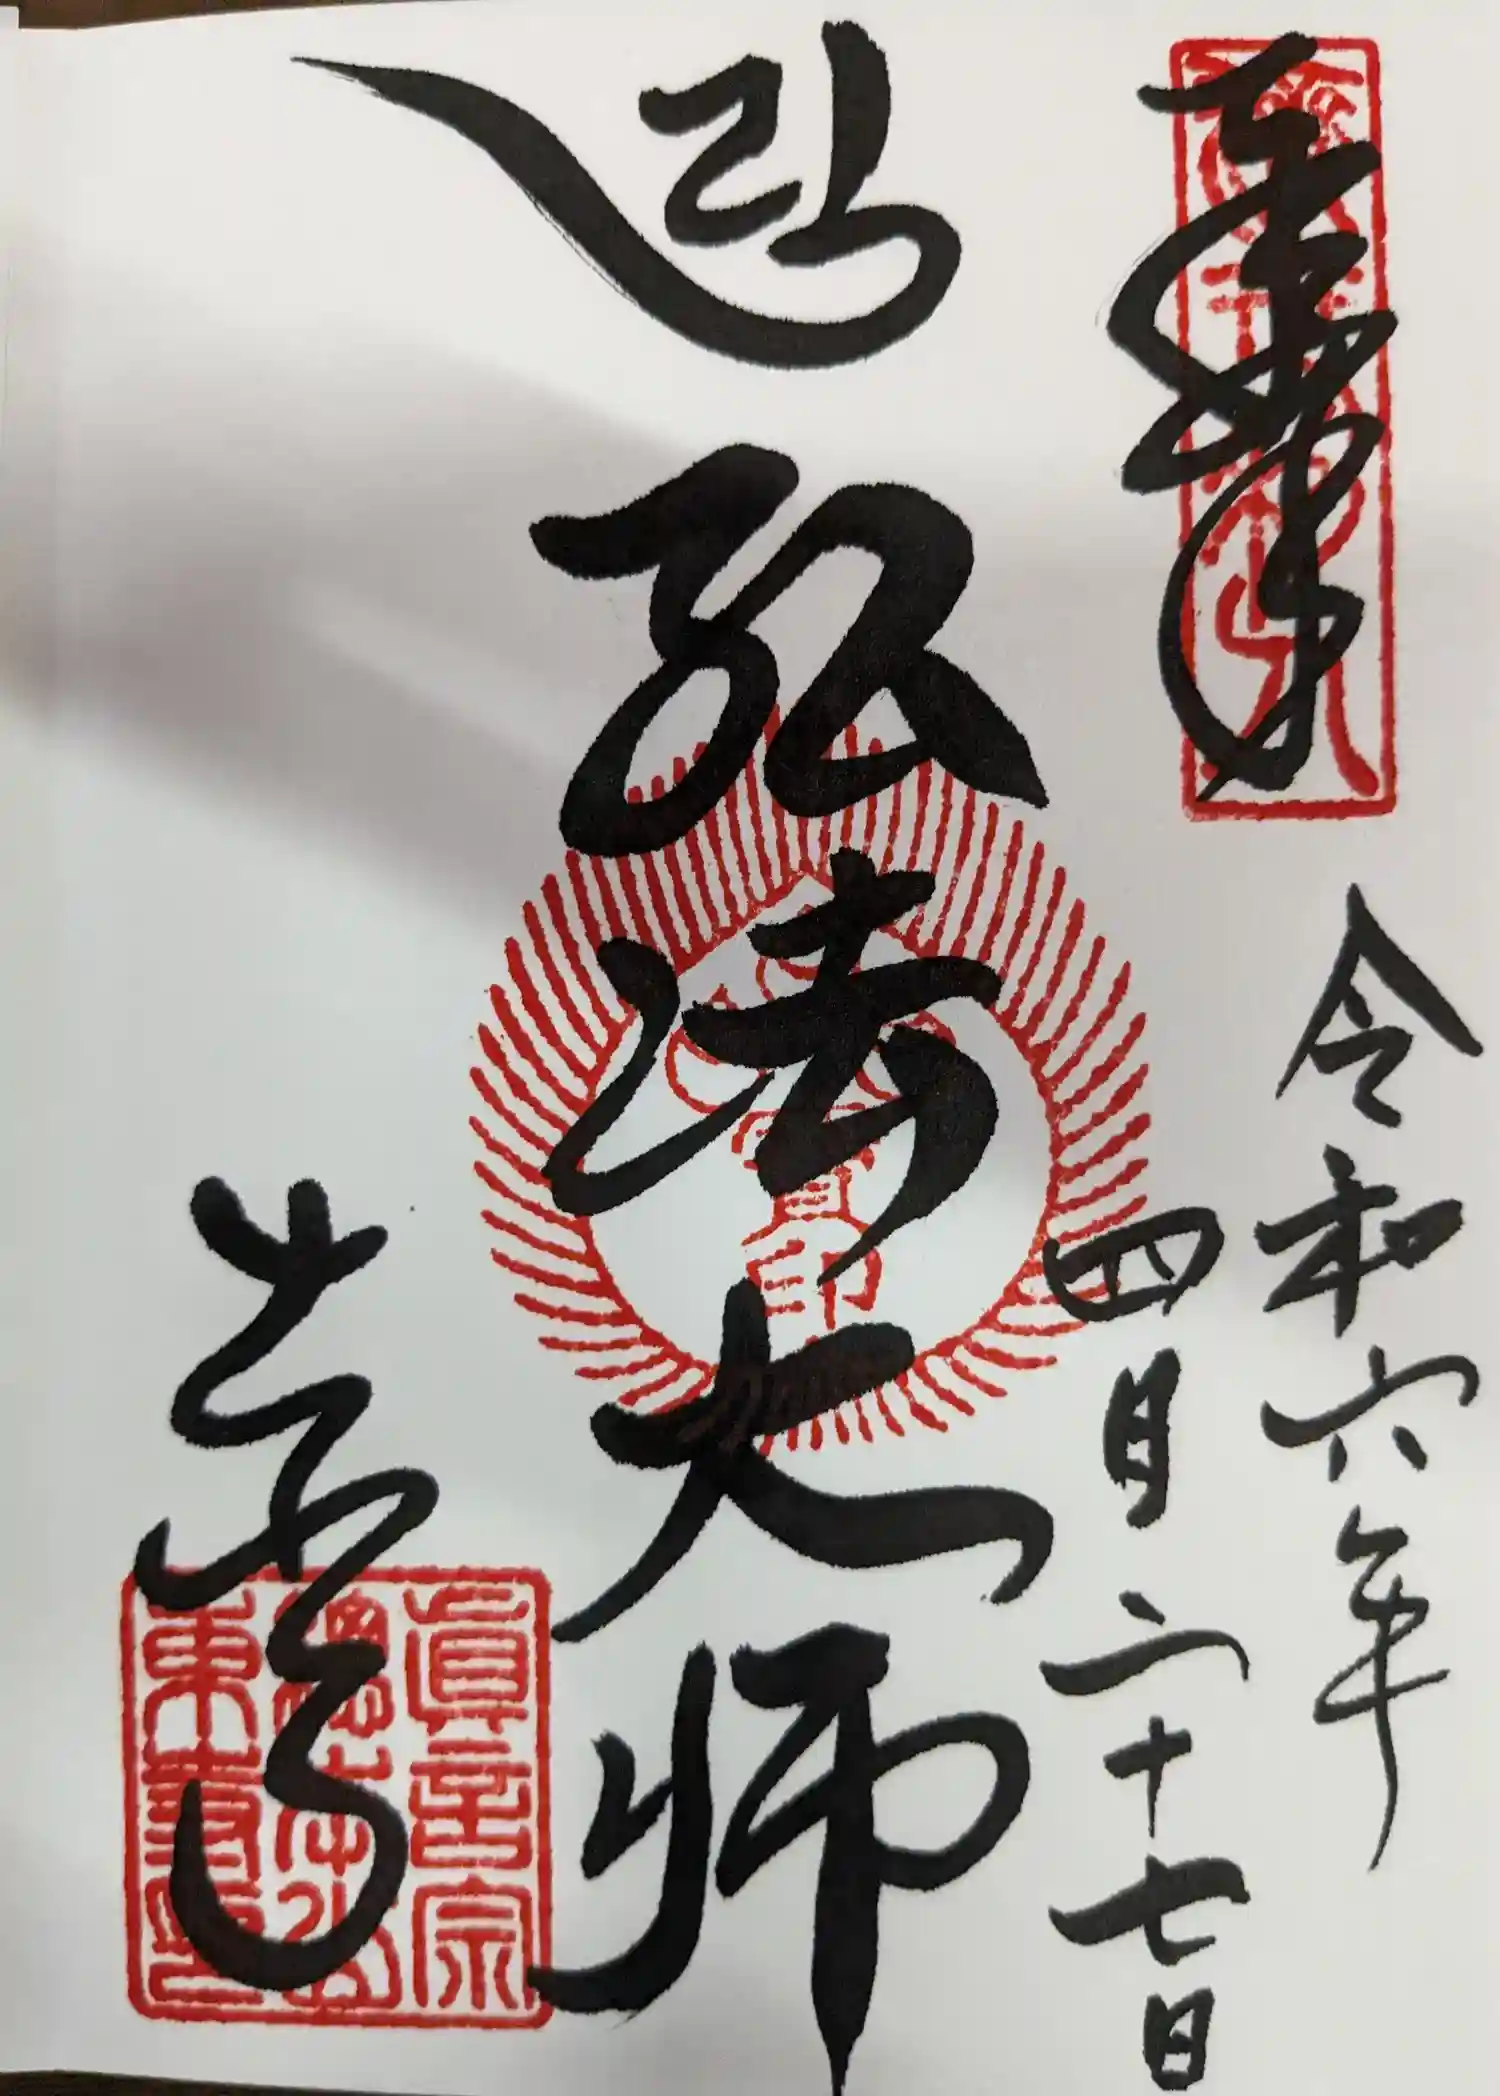 奉拝
令和六年
四月二十七日
弘法大師
寶印
東寺
眞言宗
總本山
東寺印